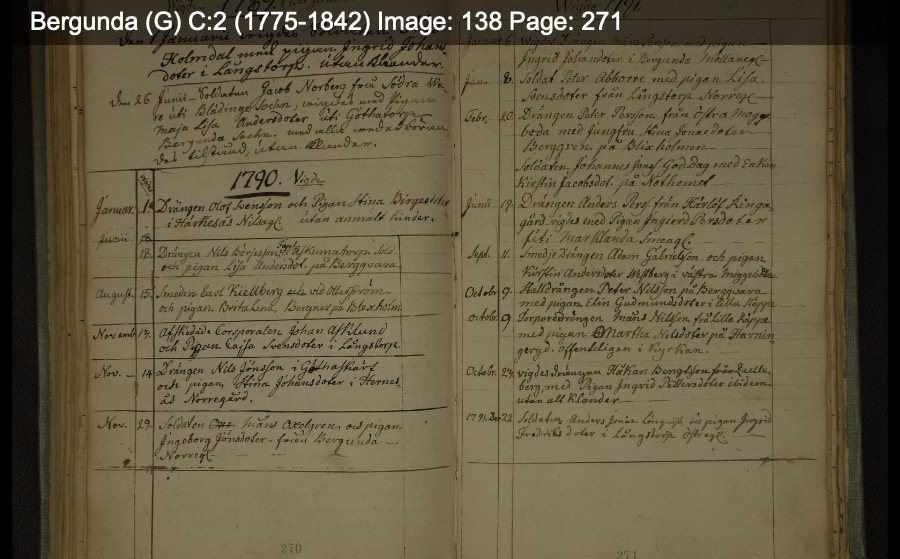 Bergunda (G) C:2 (1775-1842) Image: 138 Page: 271
1789. Vigde
Holmdal med pigan Ingrid Johans
doter i Långstorp. utan klander.
Den 26 Junii Soldaten Jacob Norberg från Södra
re uti Blädinge Sochn, vigdes med Pigan
Maja Lisa Andersdoter uti Göthatorp
Bergunda Sochn. med alla wederböran-
des tilstånd, utan klander.
1790. Vigde
Januar. 1. Drängen Olof Svensson och Pigan Stina Birgesdoter
i Härnesås Nilsg. utan anmält hinder.
Junii
18. Drängen Nils Börjesson
och pigan Lisa Andersdot. på Bergqvara
August. 15. Smeden Carl Kiellberg
och pigan Brita Lena Bergner på Blexholm.
Novemb. 17. Afskedade Corporalen Johan Afklund
och Pigan Cajsa Svensdoter i Långstorp.
Nov. 14 Drängen Nils Jönsson i
och pigan Stina Johansdoter i Hernes
ås Norregård.
Nov. 29. Soldaten Måns Oxelgren och pigan
Ingeborg Jönsdoter från Bergunda
Norreg
270
Vigde 1791.
Januari 6 Vigdes Drängen Måns Person med pigan
Ingrid Johansdoter i Bergunda Mellaneg
Jan. 8. Soldat Peter Abborre med pigan Lisa
Svensdoter från Långstorp Norreg
Febr. 20. Drängen Peter Person från östra Mogge
boda med Jungfru Stina Jonaedoter
Berggren på Blixholmen
Soldaten Johannes God Dag med Enkan
Kirstin Jacobsdot. på Nothemet
Junii 19. Drängen Anders Pers. från Härlöf Ringa
gård vigdes med Pigan Ingierd Persdoter
Marklanda Smeag
Sept. 11. Smedje Drängen Adam Gabrielson och pigan
Kirstin Andersdoter Westberg i västra Moggeboda
Octobr. 9. Halldrängen Peter Nilsson på Bergqvara
med pigan Elin Gudmundsdoter i Lilla Käppe
Octobr. 9 Torparedrängen Måns Nilsson från Lilla Käppe
med pigan Martha Nilsdoter på Havnin
geryd. offenteligen i Kyrkan.
Octobr. 29. vigdes drängen Håkan Bengtsson från
berg, med Pigan Ingrid Pettersdoter ibidem
utan alt Klander
1791. 28 Soldaten Anders Jonae Lönquist och pigan Ingrid
Fredriksdoter i Långstorp Östreg
271